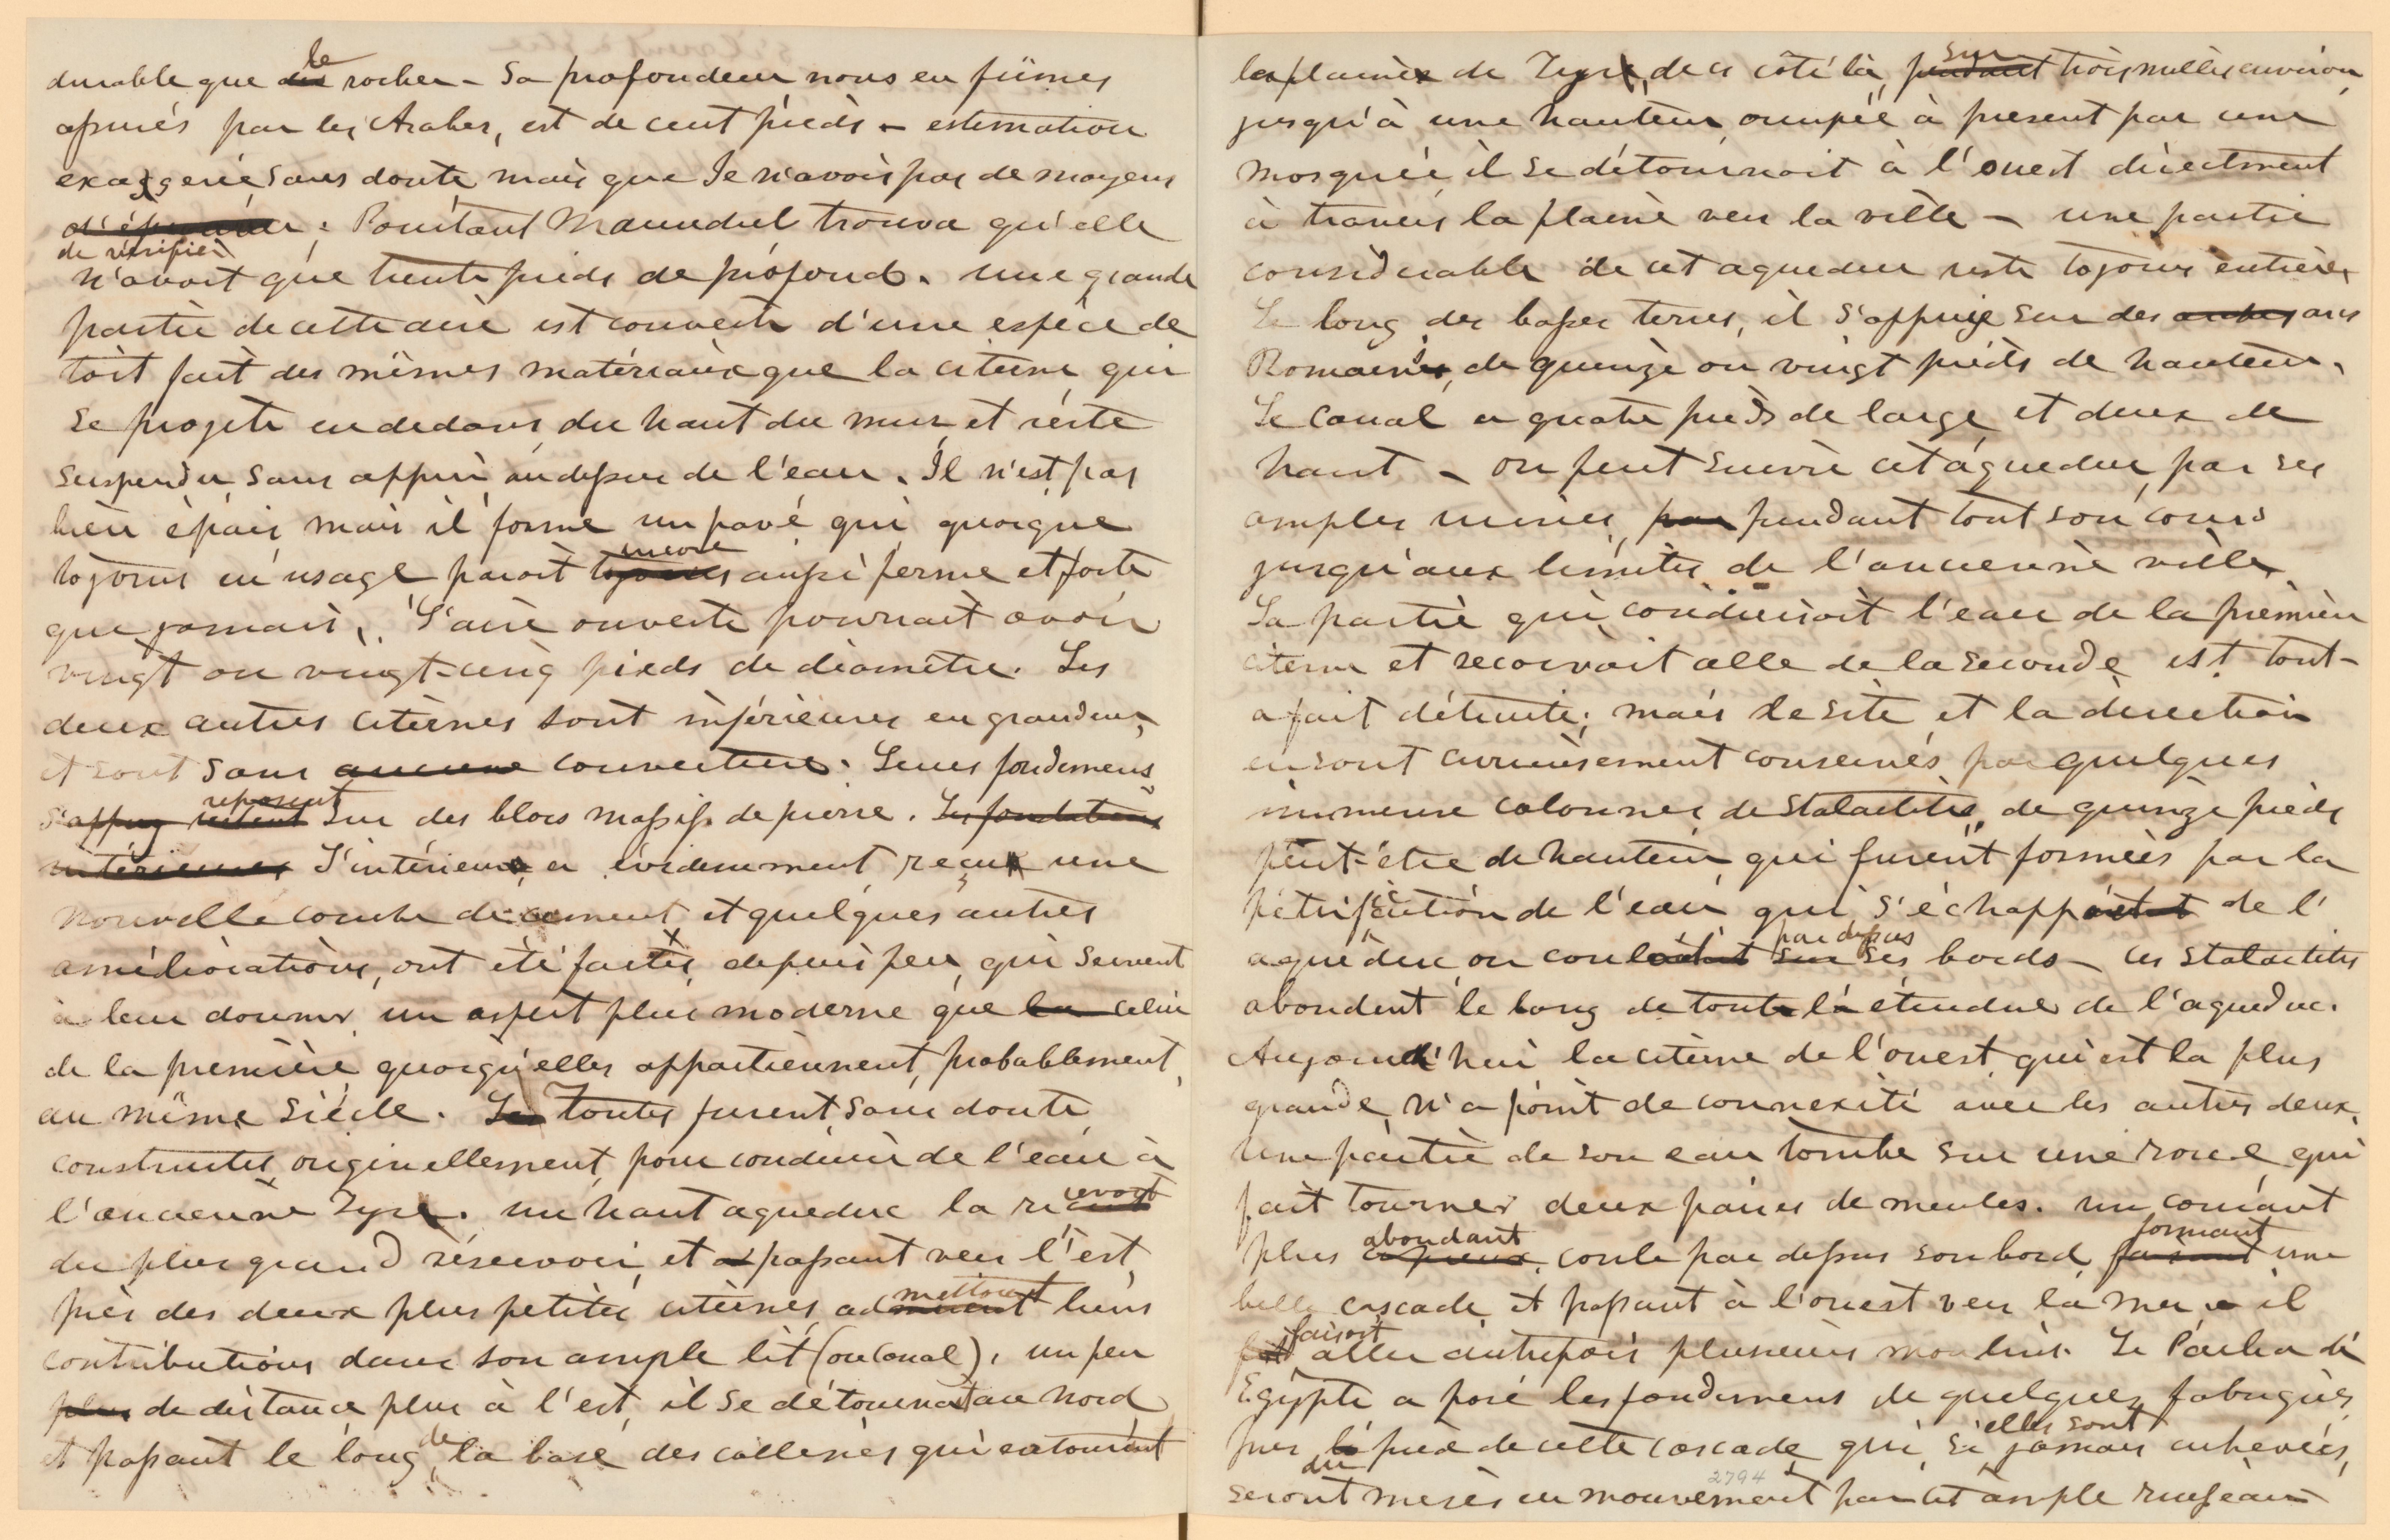 durable que le rocher - Sa profondeur nous en fûmes
assurés par les Arabes, est de cent pieds - estimation
exaggerée sans doute mais que Je n'avois pas de moyens
de vérifier ; Pourtant Maundrel trouva qu'elle
n'avoit que trente pieds de profond. une grande
partie de cette aire est couverte d'une espèce de
toit fait des mêmes matériaux que la citerne qui
se projete en dedans du haut du mur et reste
suspendu, sans appui au dessus de l'eau. Il n'est pas
bien épais mais il forme un pavé qui quoique
tojours en usage paroit encore aussi ferme et forte
que jamais. L'aire ouverte pourrait avoir
vingt ou vingt-cinq pieds de diamètre. Les
deux autres citernes sont inférieures en grandeur,
et sont sans aucune couverture. Leurs fondemens
reposent sur des blocs massifs de pierre. Les fondations
intérieures L'intérieur a évidemment reçu une
nouvelle couche de cement et quelques autres
améliorations, ont été faites, depuis peu, qui servent
à leur donner un aspect plus moderne que celui
de la première quoiqu'elles appartiennent, probablement,
au même siècle. Toutes furent, sans doute,
construites originellement pour conduire de l'eau à
l'ancienne Tyre. un haut aqueduc la recevoit
du plus grand réservoir, et passant vers l'est,
près des deux plus petites citernes, admettoit leurs
contributions dans son ample lit (ou Canal), un peu
plus de distance plus à l'est, il se détournoit au nord
et passant le long de la base des collines qui entourent
les plaines de Tyre, de ce côté là, sur trois milles environ,
jusqu'à une hauteur occupée à present par une
mosquée, il se détournoit à l'ouest directment
à travers la plaine vers la ville - une partie
considerable de cet aqueduc reste tojours entière.
Le long des basses terres, il s'appuie sur des arcs
Romains, de quinze ou vingt pieds de hauteur.
Le Canal a quatre pieds de large et deux de
haut - on peut suivre cet aqueduc, par ses
amples ruines, pendant tout son cours
jusqu'aux limites de l'ancienne ville.
La partie qui conduisoit l'eau de la première
citerne et recoivoit celle de la seconde est tout-
a fait détruite; mais le site et la direction
en sont curieusement conservés par quelques
immense colonnes de Stalactites, de quinze pieds
peut-être de hauteur qui furent formées par la
pétrification de l'eau qui s'échappoit de l'
aqueduc ou couloit par dessus ses bords - ces stalactites
abondent le long de toute la étendue de l'aqueduc.
Aujourd'hui la citerne de l'ouest, qui est la plus
grande, n'a point de connexité avec les autres deux.
Une partie de son eau tombe sur une roue qui
fait tourner deux paires de meules. un courant
plus abondant coule par dessus son bord, formant une
belle cascade, et passant à l'ouest vers la mer - il
faisoit aller autrefois plusieurs moulins. Le Pacha d'
Egypte a posé les fondemens de quelques fabriques,
près du pied de cette cascade qui, si elles sont jamais achevées,
seront mises en mouvement par cet ample ruisseau
2794